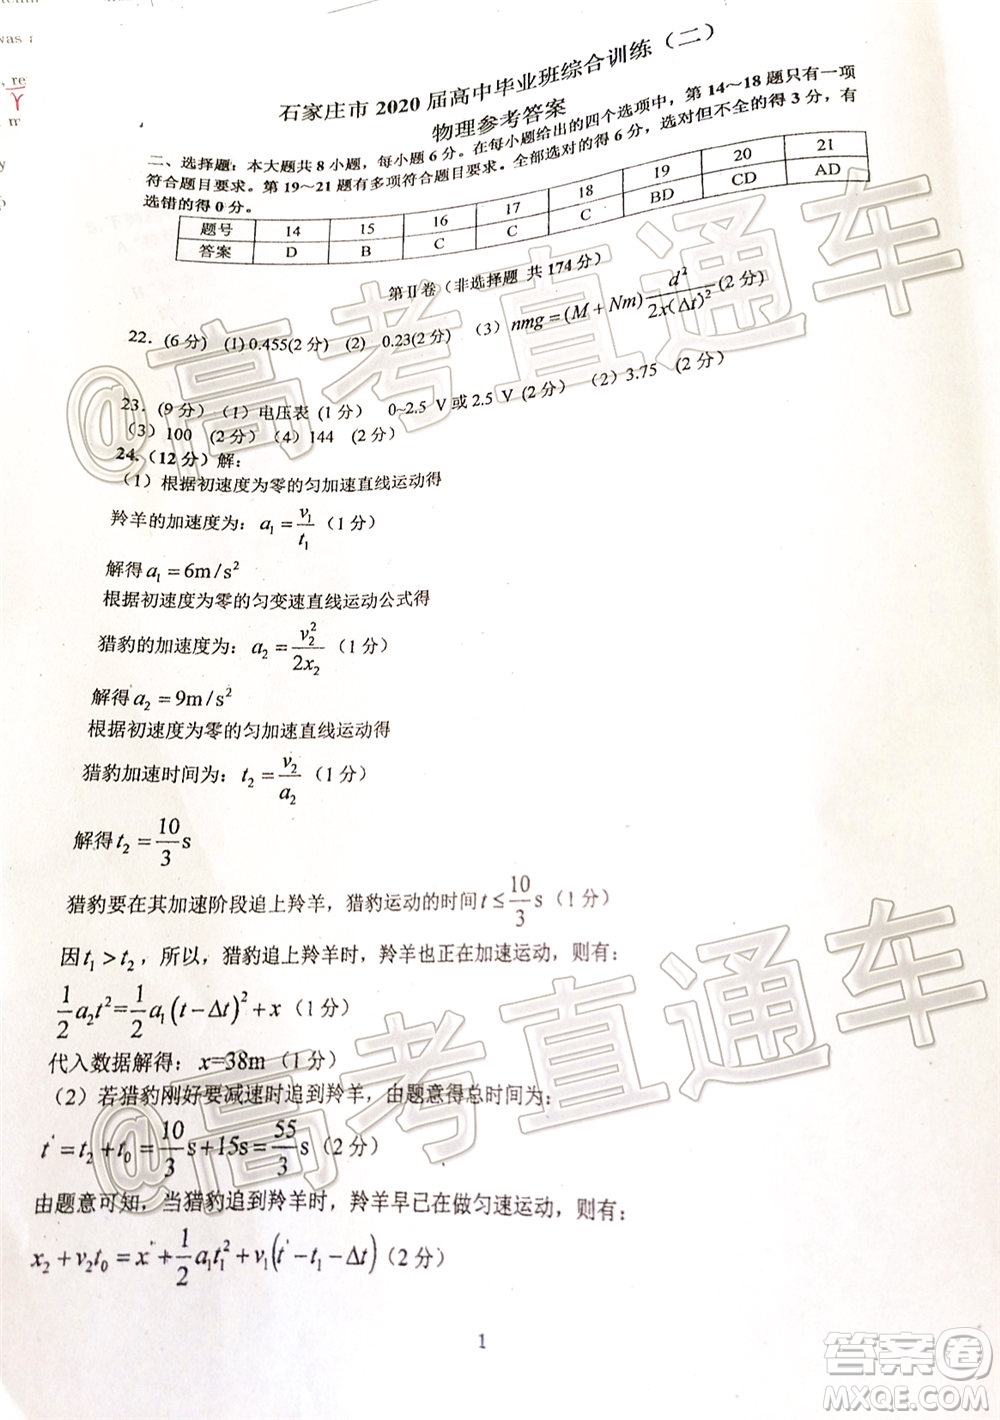 was
re
Y
m
y
石家庄市 2020 届高中毕业班综合训练（二）
物理参考答案
二、选择题：本大题共 8 小题，每小题 6 分。在每小题给出的四个选项中，第 14～18 题只有一项
符合题目要求。第 19～21 题有多项符合题目要求。全部选对的得 6 分，选对但不全的得 3 分，有
选错的得 0 分。
题号 14 15 16 17 18 19 20 21
答案 D B C C C BD CD AD
第Ⅱ卷（非选择题 共 174 分）
22．(6 分) (1) 0.455(2 分) (2) 0.23(2 分) (3) nmg = (M + Nm) d²/2x(Δt)² (2 分)
23．(9 分)（1）电压表 (1 分) 0~2.5 V 或 2.5 V (2 分) （2）3.75 (2 分)
（3）100 (2 分)（4）144 (2 分)
24.（12 分）解：
（1）根据初速度为零的匀加速直线运动得
羚羊的加速度为：a₁ = v₁/t₁（1 分）
解得 a₁ = 6m/s²
根据初速度为零的匀变速直线运动公式得
猎豹的加速度为：a₂ = v₂²/2x₂（1 分）
解得 a₂ = 9m/s²
根据初速度为零的匀加速直线运动得
猎豹加速时间为：t₂ = v₂/a₂（1 分）
解得 t₂ = 10/3 s
猎豹要在其加速阶段追上羚羊，猎豹运动的时间 t ≤ 10/3 s（1 分）
因 t₁ > t₂，所以，猎豹追上羚羊时，羚羊也正在加速运动，则有：
1/2 a₂t² = 1/2 a₁(t − Δt)² + x（1 分）
代入数据解得：x=38m（1 分）
（2）若猎豹刚好要减速时追到羚羊，由题意得总时间为：
t' = t₂ + t₀ = 10/3 s+15s = 55/3 s（2 分）
由题意可知，当猎豹追到羚羊时，羚羊早已在做匀速运动，则有：
x₂ + v₂t₀ = x' + 1/2 a₁t₁² + v₁(t' − t₁ − Δt)（2 分）
1
@高考直通车
@高考直通车
答案卷
MXQE.COM